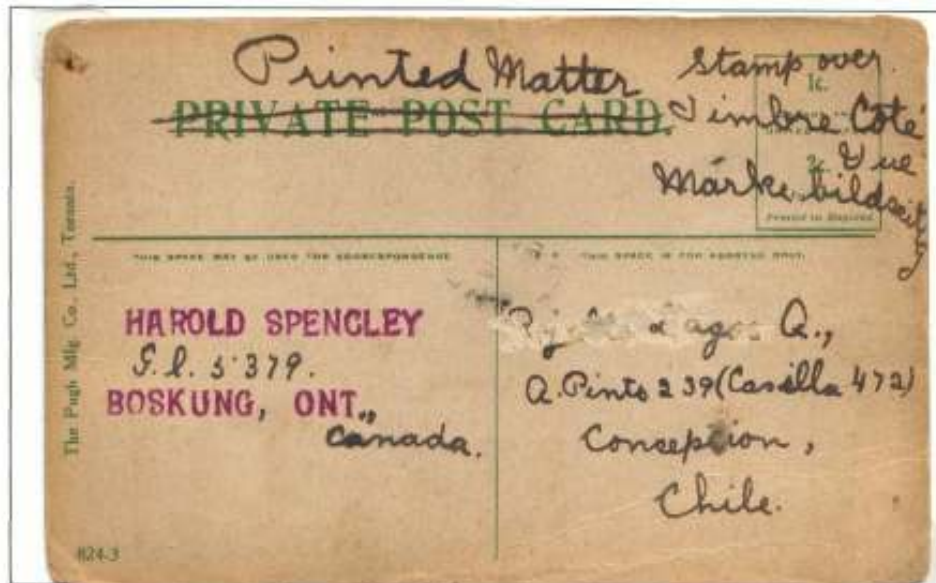 Printed Matter
PRIVATE POST CARD.
Stamp over.
1c.
Timbre Coté
2c. Vue
Márke bildseitig
Printed in England.
The Pugh Mfg Co., Ltd., Toronto.
THIS SPACE MAY BE USED FOR CORRESPONDENCE
THIS SPACE IS FOR ADDRESS ONLY.
HAROLD SPENCLEY
5379.
BOSKUNG, ONT.,
Canada.
Q.,
A. Pinto 239 (Casilla 472)
Concepcion,
Chile.
824-3